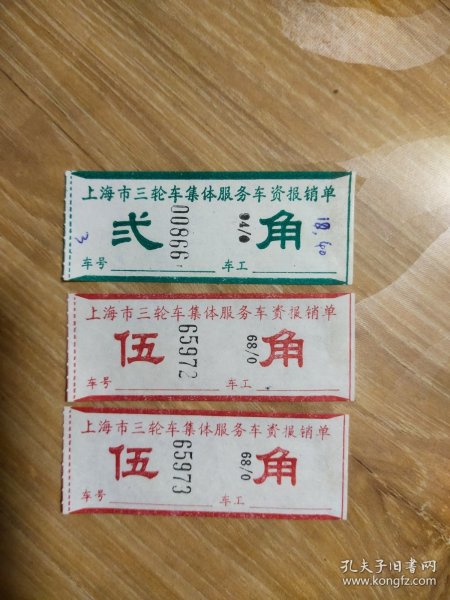 上海市三轮车集体服务车资报销单
弍 角
00866
04/0
18.60
3
车号 车工
上海市三轮车集体服务车资报销单
伍 角
65972
68/0
车号 车工
上海市三轮车集体服务车资报销单
伍 角
65973
68/0
车号 车工
孔夫子旧书网
www.kongfz.com